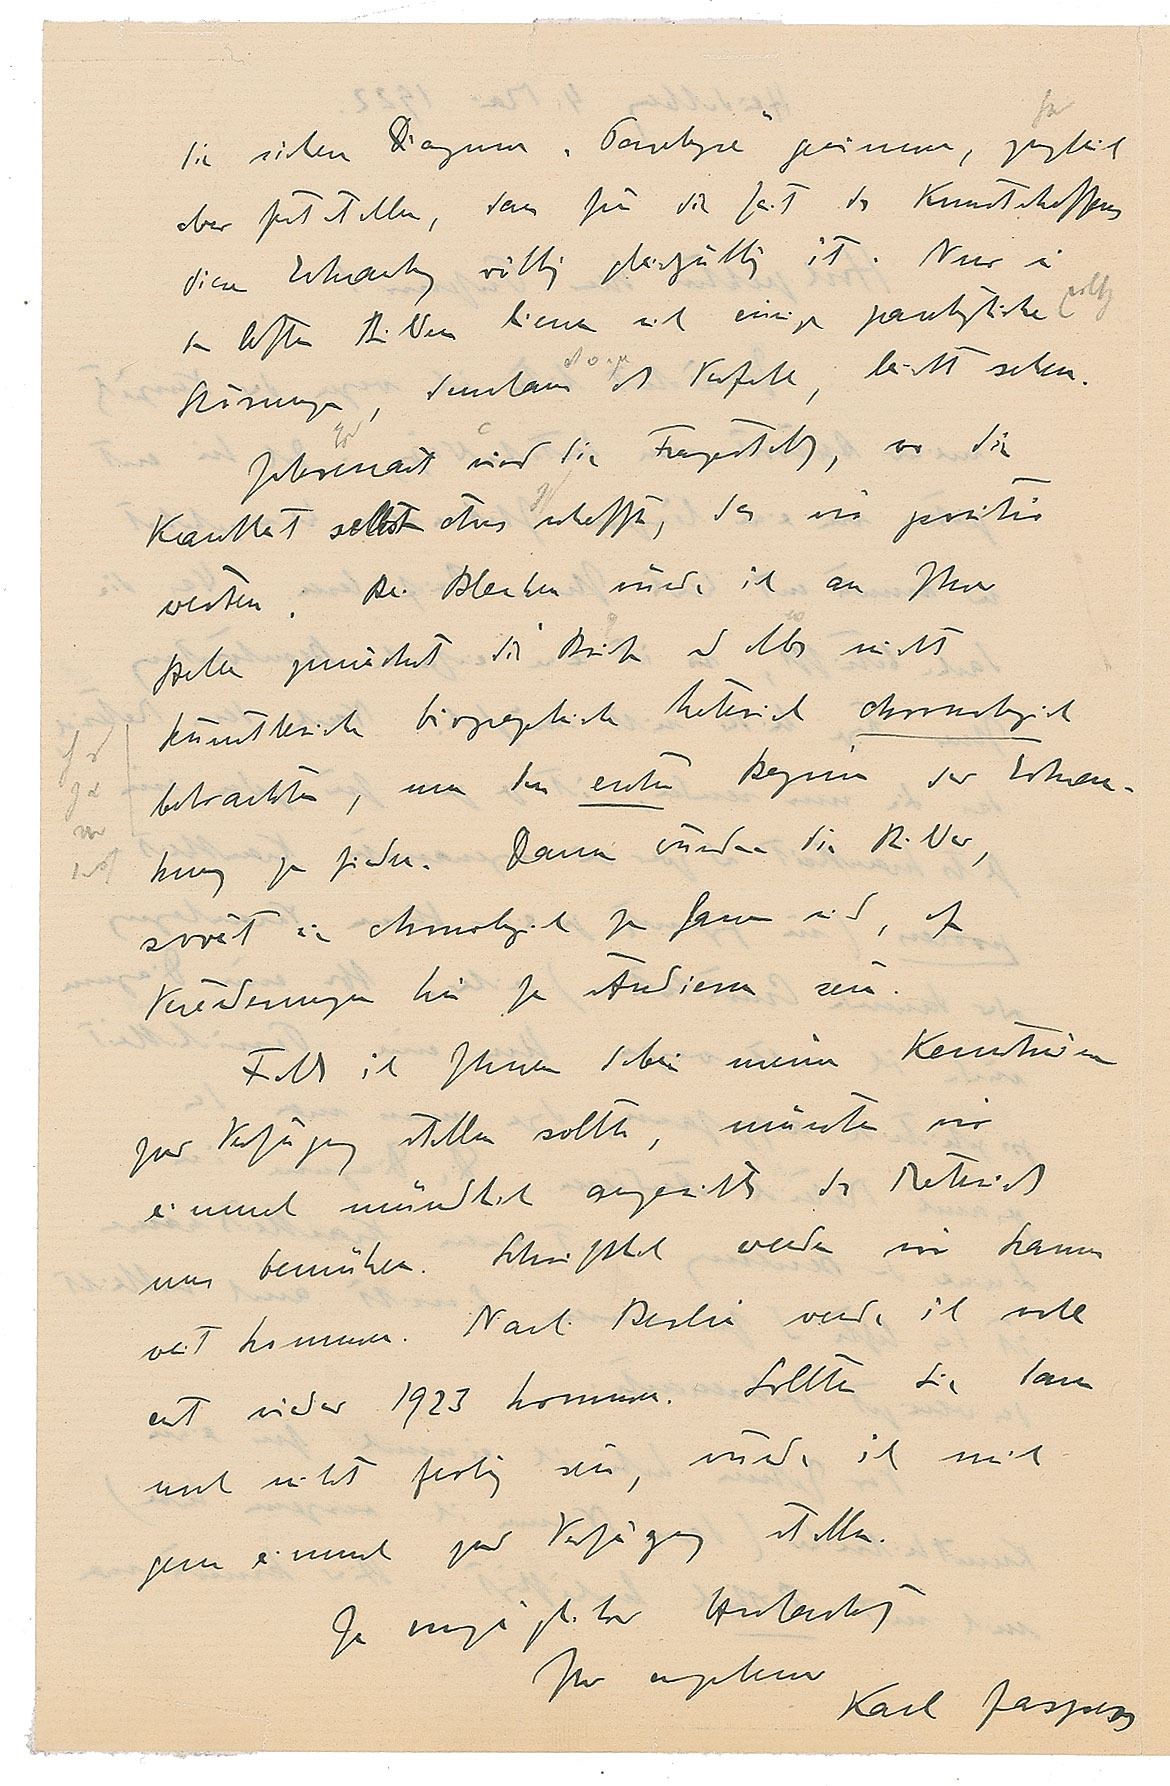 die sichere Diagnose „Paralyse" gewinnen, zugleich
aber feststellen, dass für die Zeit des Kunstschaffens
diese Erkrankung völlig gleichgültig ist. Nur in
den letzten Bildern liessen sich einige paralytische
Störungen, Verfall, leicht sehen.
Interessant wird die Fragestellung, wo die
Krankheit selbst etwas schafft, das wir positiv
werten. Bei Blechen würde ich an Ihrer
Stelle zunächst die Briefe und alles nicht
künstlerische biographische Material chronologisch
betrachten, um den ersten Beginn der Erkran-
kung zu finden. Dann würden die Bilder,
soweit sie chronologisch zu fassen sind, auf
Veränderungen hin zu studieren sein.
Falls ich Ihnen dabei meine Kenntnisse
zur Verfügung stellen sollte, müssten wir
einmal mündlich angesichts des Materials
uns bemühen. Schriftlich werden wir kaum
weit kommen. Nach Berlin werde ich wohl
erst wieder 1923 kommen. Sollten Sie dann
noch nicht fertig sein, würde ich mich
gern einmal zur Verfügung stellen.
In vorzüglicher Hochachtung
Ihr ergebener
Karl Jaspers